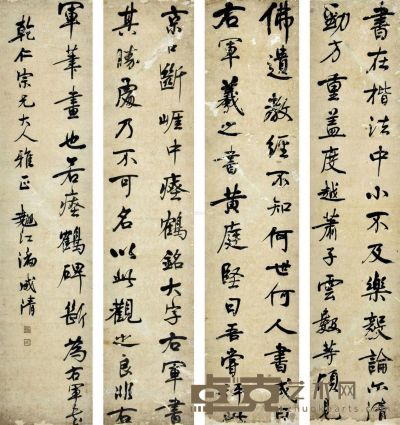 書在楷法中小不及樂毅論尔清
勁方重蓋度越蕭子雲數等頃見
佛遺教經不知何世何人書或
右軍羲之書黃庭堅曰吾嘗評此
京口斷崖中瘞鶴銘大字右軍書
其勝處乃不可名以此觀之良非右
軍筆畫也若瘞鶴碑斷為右軍書
乾仁宗元大人雅正 江 咸清
卓克艺术网